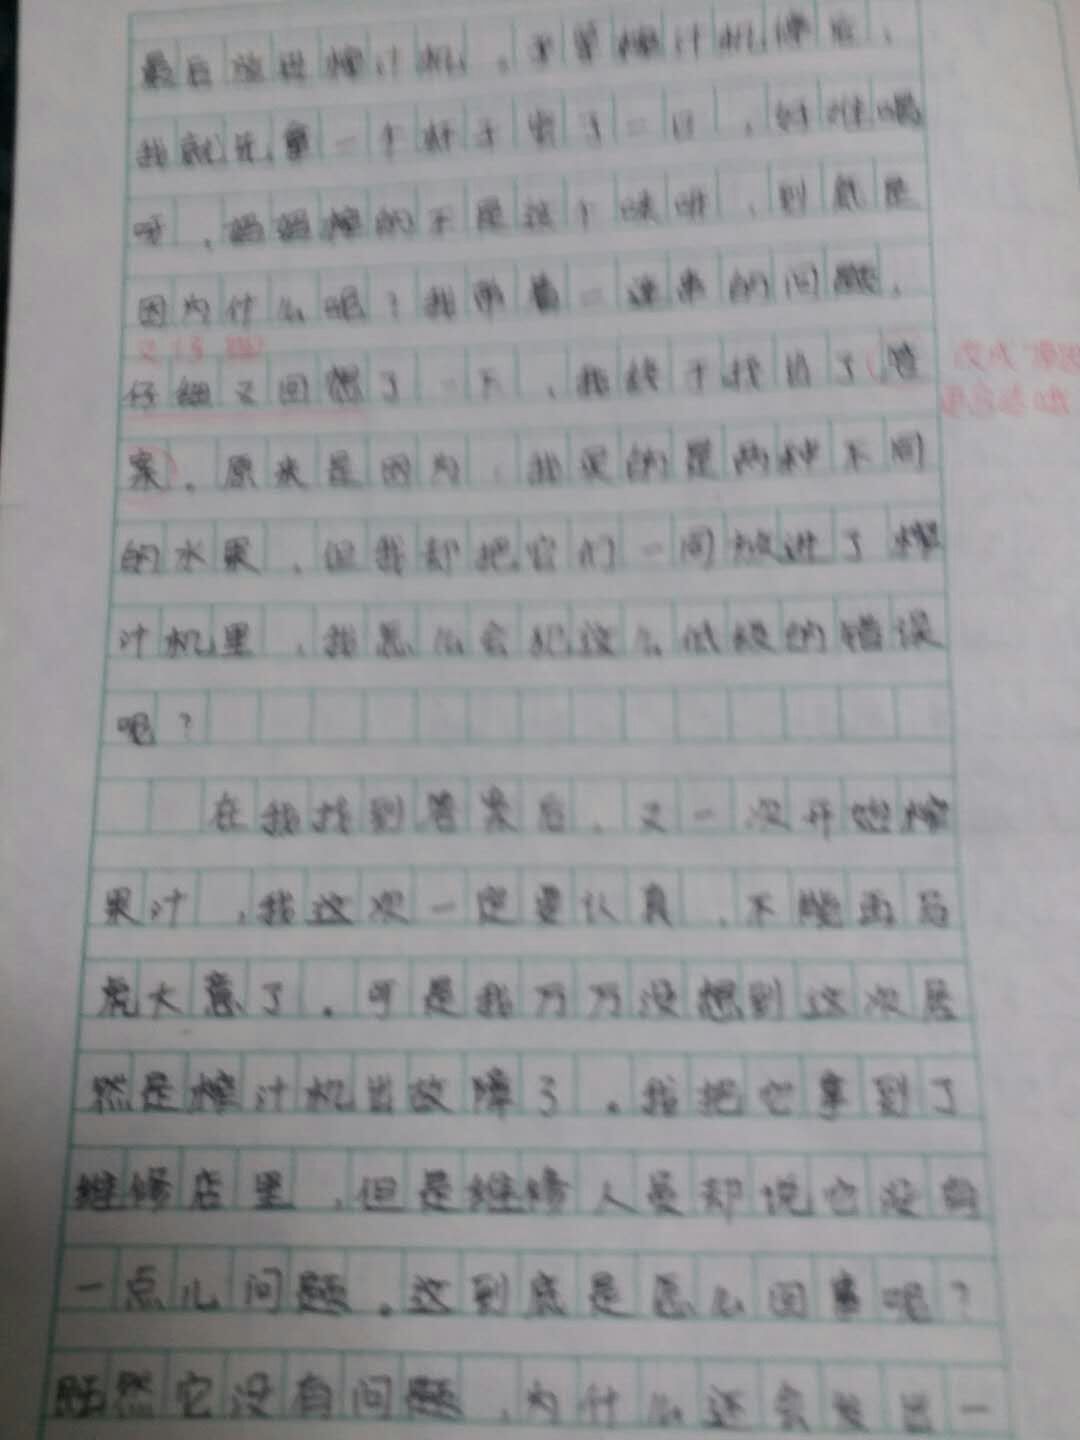 最后放进榨汁机，不等榨汁机停后，
我就先拿一个杯子尝了一口，好难喝
呀，妈妈榨的不是这个味呀，到底是
因为什么呢？我带着一连串的问题，
又仔细
仔细又回想了一下，我终于找出了答
改成"原因
更合适哦
案。原来是因为，我买的是两种不同
的水果，但我却把它们一同放进了榨
汁机里，我怎么会犯这么低级的错误
呢？
在我找到答案后，又一次开始榨
果汁，我这次一定要认真，不能再马
虎大意了。可是我万万没想到这次居
然是榨汁机出故障了。我把它拿到了
维修店里，但是维修人员却说它没有
一点儿问题。这到底是怎么回事呢？
既然它没有问题，为什么还会发出一